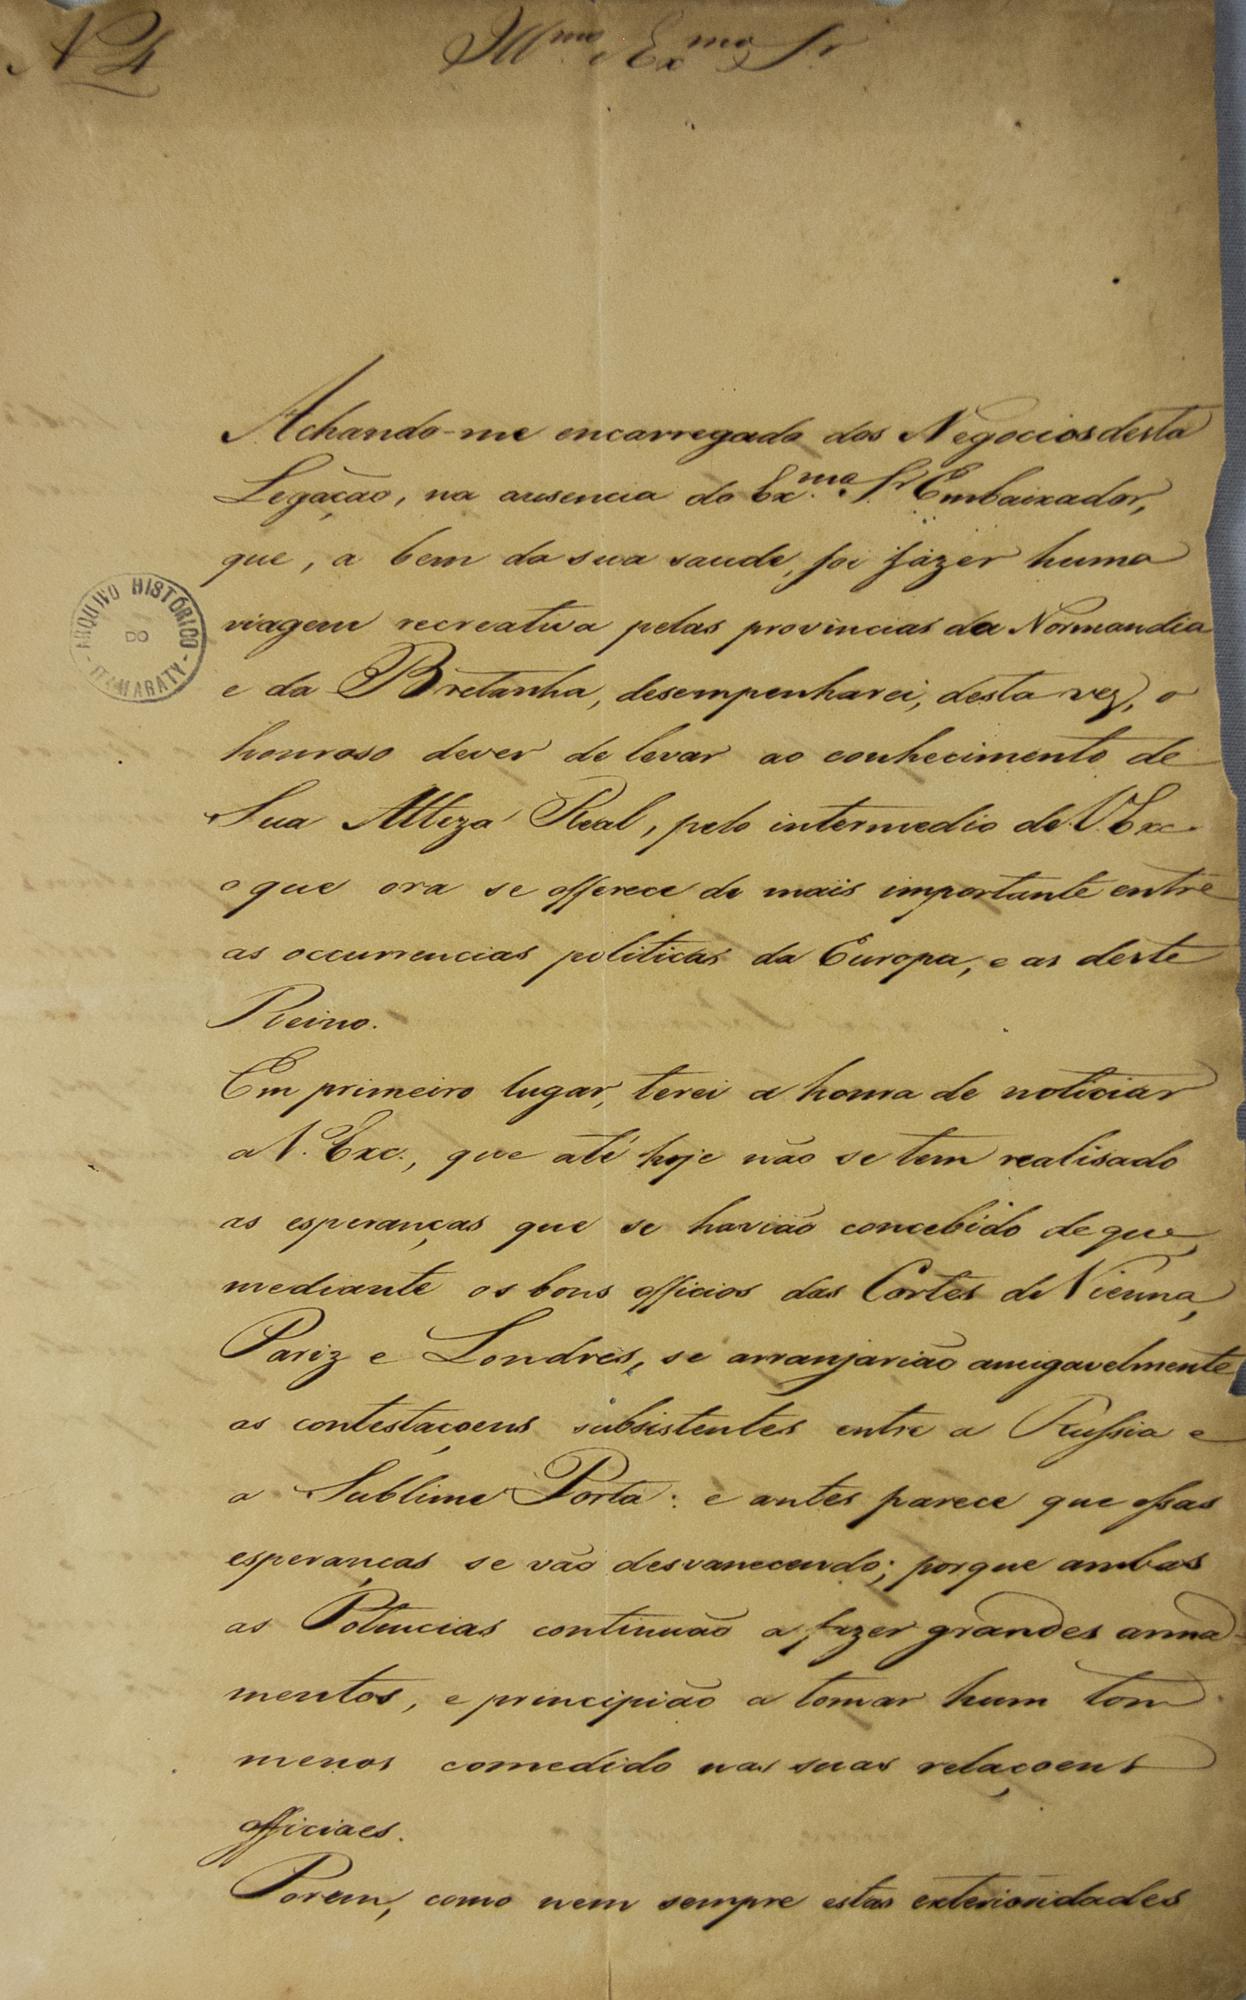 N 4
Ill.mo e Ex.mo Sr
Achando-me encarregado dos Negocios desta
Legação, na ausencia do Ex.mo Sr Embaixador,
que, a bem da sua saude, foi fazer huma
viagem recreativa pelas provincias da Normandia
e da Bretanha, desempenharei, desta vez, o
honroso dever de levar ao conhecimento de
Sua Alteza Real, pelo intermedio de V. Exc.
o que ora se offerece de mais importante entre
as occurrencias politicas da Europa, e as deste
Reino.
Em primeiro lugar, terei a honra de noticiar
a V. Exc., que até hoje não se tem realisado
as esperanças que se havião concebido de que,
mediante os bons officios das Cortes de Vienna,
Pariz e Londres, se arranjarião amigavelmente
as contestaçoens subsistentes entre a Russia e
a Sublime Porta: e antes parece que essas
esperanças se vão desvanecendo; porque ambas
as Potencias continuão a fazer grandes arma-
mentos, e principião a tomar hum tom
menos comedido nas suas relaçoens
officiaes.
Porem, como nem sempre estas exterioridades
ARQUIVO HISTÓRICO
DO
ITAMARATY